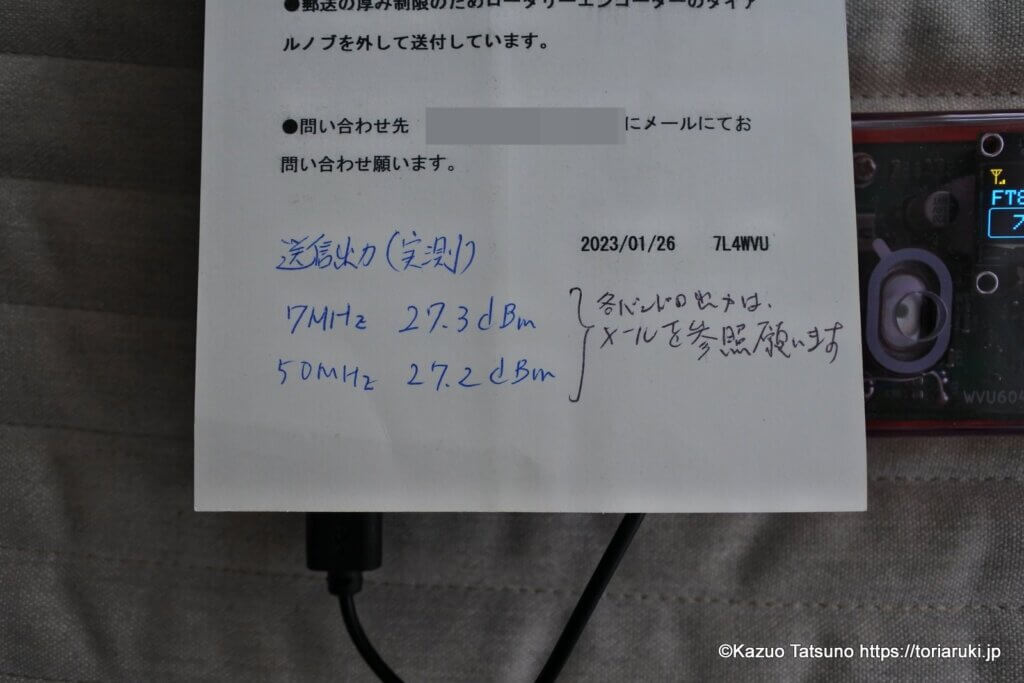 ●郵送の厚み制限のためロータリーエンコーダーのダイア
ルノブを外して送付しています。
●問い合わせ先 にメールにてお
問い合わせ願います。
2023/01/26 7L4WVU
送信出力(実測)
7MHz 27.3dBm
50MHz 27.2dBm
各バンドの出力は、
メールを参照願います
FT8
7
WVU604
©Kazuo Tatsuno https://toriaruki.jp